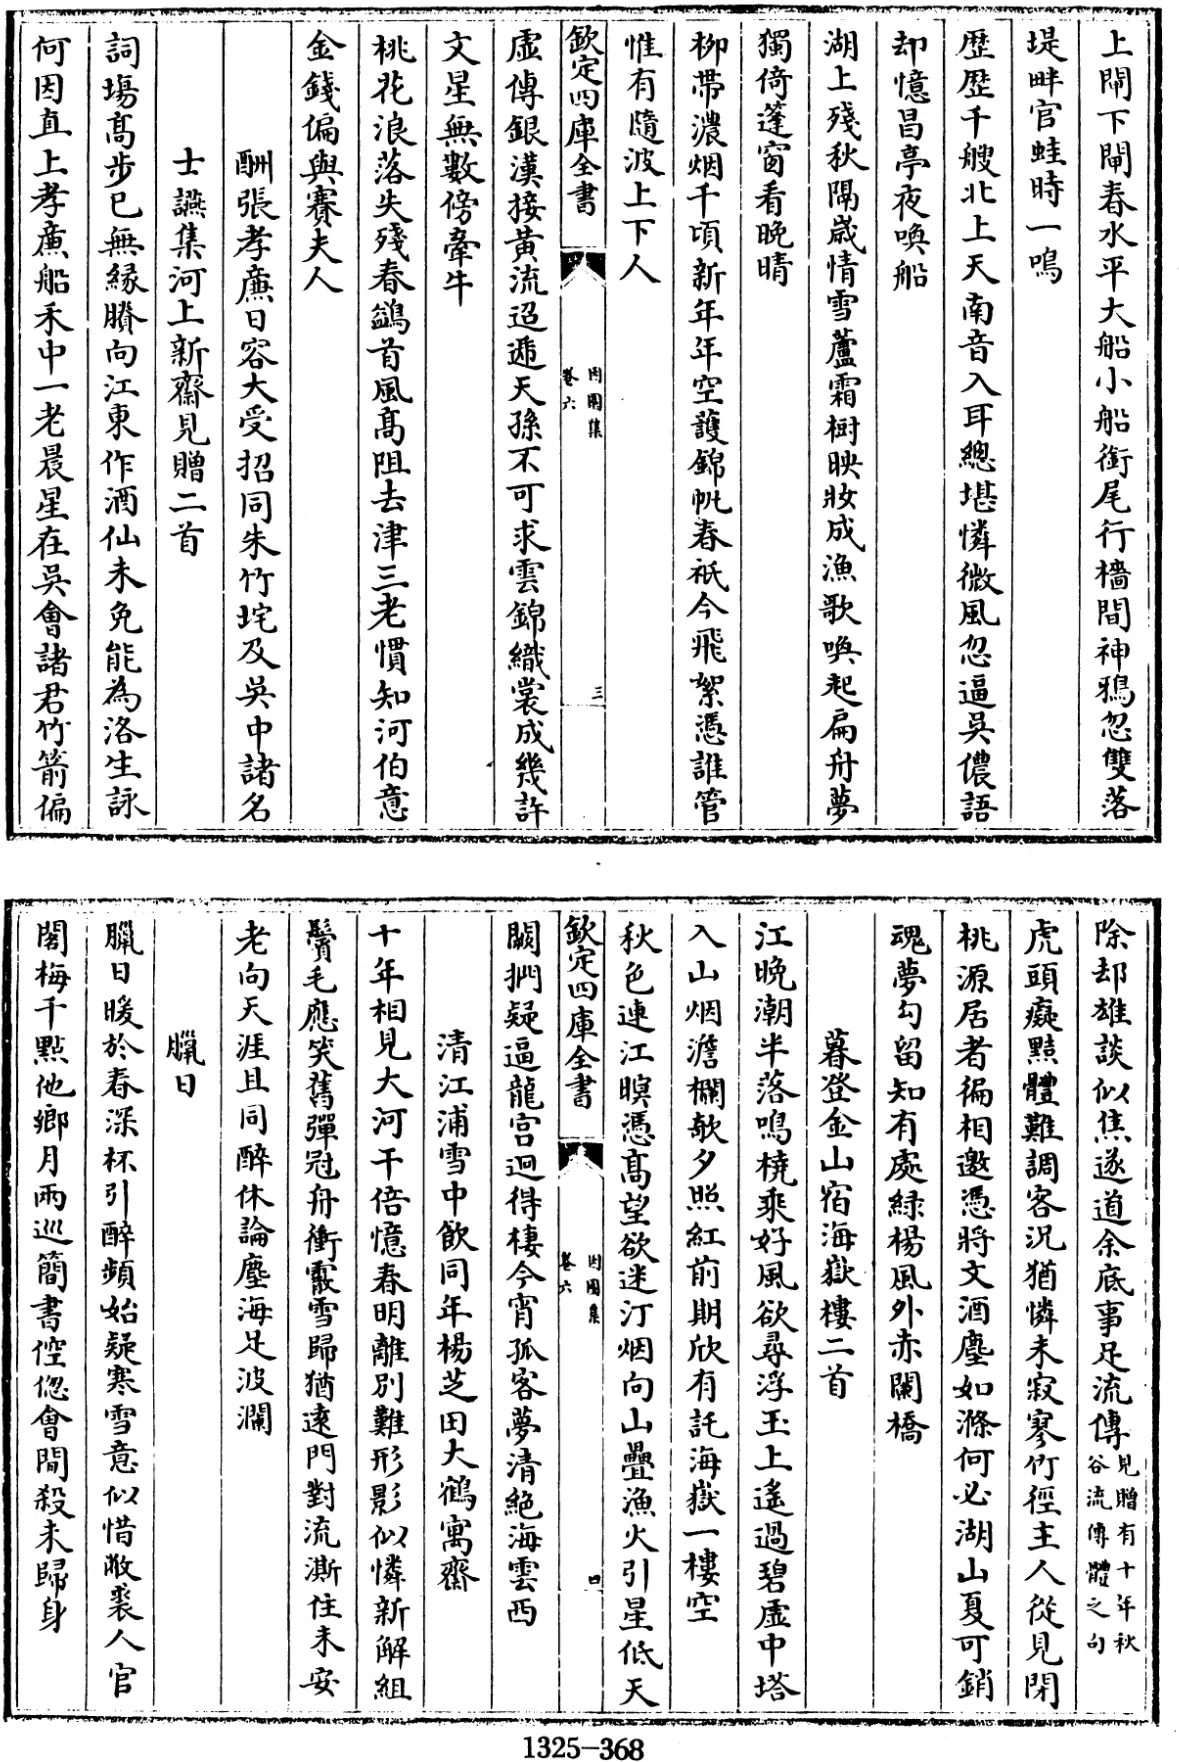 上閘下閘春水平大船小船銜尾行檣間神鴉忽雙落
堤畔官蛙時一鳴
歴歴千艘北上天南音入耳總堪憐微風忽逼吳儂語
却憶昌亭夜喚船
湖上殘秋隔歲情雪蘆霜樹映妝成漁歌喚起扁舟夢
獨倚蓬窗看晩晴
柳帶濃烟千頃新年年空護錦帆春祇今飛絮憑誰管
惟有隨波上下人
欽定四庫全書
卷六
三
虛傳銀漢接黃流迢遞天孫不可求雲錦織裳成幾許
文星無數傍牽牛
桃花浪落失殘春鷁首風髙阻去津三老慣知河伯意
金錢偏與賽夫人
酬張孝㢘日容大受招同朱竹垞及吳中諸名
士讌集河上新齋見贈二首
詞塲髙步已無縁賸向江東作酒仙未免能為洛生詠
何因直上孝㢘船禾中一老晨星在吳會諸君竹箭偏
除却雄談似焦遂道余底事足流傳見贈有十年秋
谷流傳體之句
虎頭癡黠體難調客況猶憐未寂寥竹徑主人從見閉
桃源居者徧相邀憑將文酒塵如滌何必湖山夏可銷
魂夢勾留知有處緑楊風外赤闌橋
暮登金山宿海嶽樓二首
江晩潮半落鳴橈乘好風欲尋浮玉上遙過碧虛中塔
入山烟澹欄欹夕照紅前期欣有託海嶽一樓空
秋色連江暝憑髙望欲迷汀烟向山疊漁火引星低天
欽定四庫全書
卷六
闕捫疑逼龍宮迥得棲今宵孤客夢清絶海雲西
清江浦雪中飲同年楊芝田大鶴寓齋
十年相見大河干倍憶春明離别難形影似憐新解組
鬢毛應笑舊彈冠舟衝霰雪歸猶逺門對流澌住未安
老向天涯且同醉休論塵海足波瀾
臘日
臘日暖於春深杯引醉頻始疑寒雪意似惜敝裘人官
閣梅千點他鄉月兩巡簡書倥偬會閒殺未歸身
1325-368